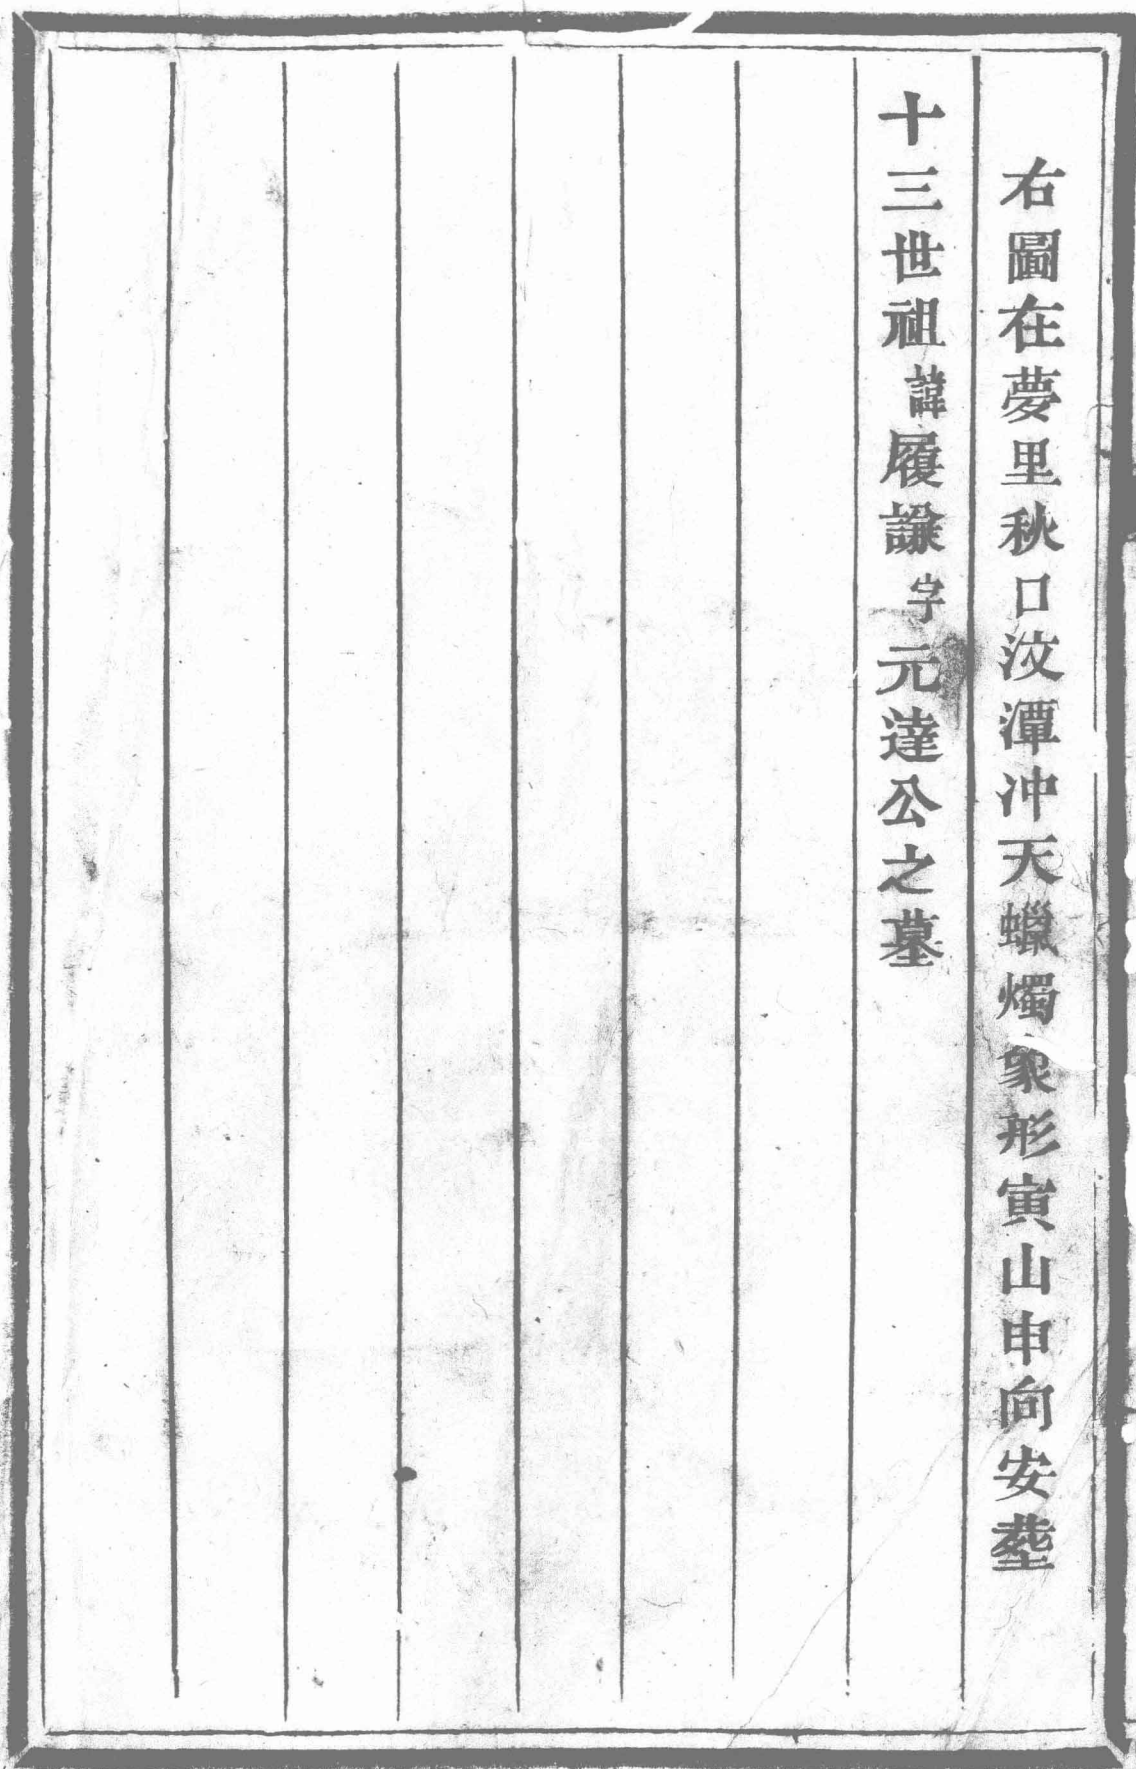 右圖在夢里秋口汶潭冲天蠟燭象形寅山申向安塟
十三世祖諱履謙字元達公之墓